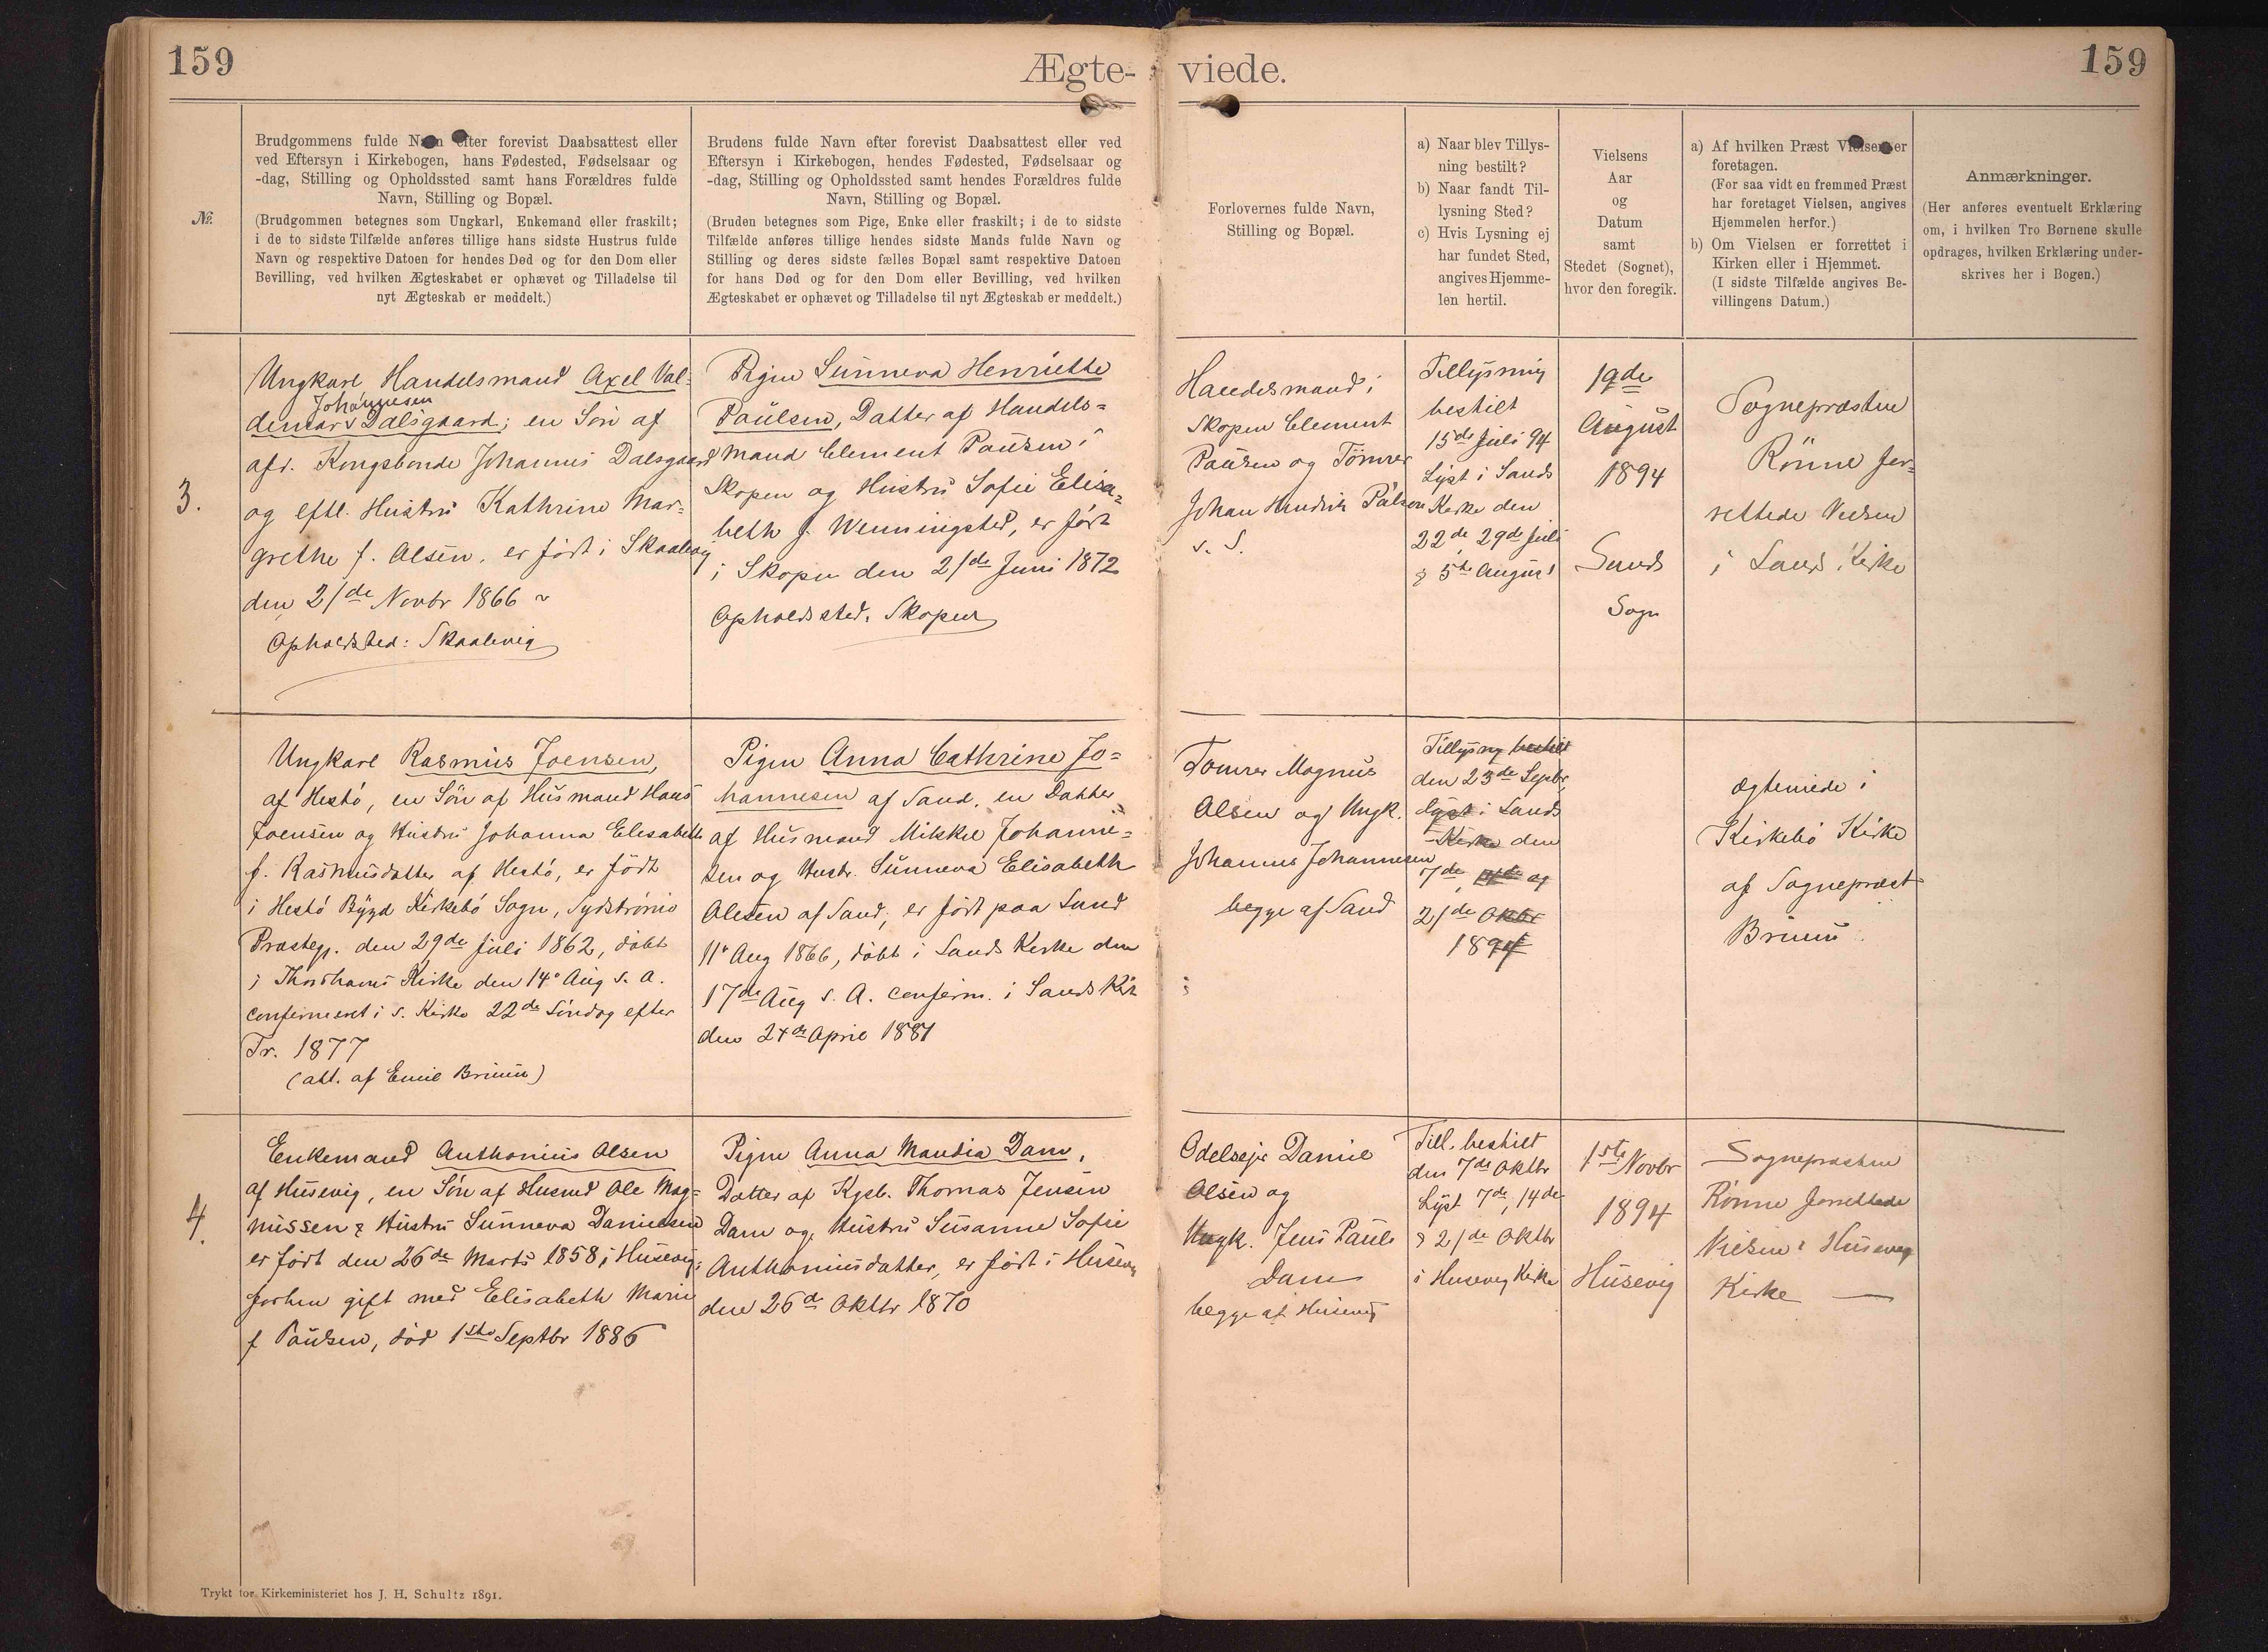 159
Ægte-
viede.
159
№.
Brudgommens fulde Navn efter forevist Daabsattest eller
ved Eftersyn i Kirkebogen, hans Fødested, Fødselsaar og
-dag, Stilling og Opholdssted samt hans Forældres fulde
Navn, Stilling og Bopæl.
(Brudgommen betegnes som Ungkarl, Enkemand eller fraskilt;
i de to sidste Tilfælde anføres tillige hans sidste Hustrus fulde
Navn og respektive Datoen for hendes Død og for den Dom eller
Bevilling, ved hvilken Ægteskabet er ophævet og Tilladelse til
nyt Ægteskab er meddelt.)
Brudens fulde Navn efter forevist Daabsattest eller ved
Eftersyn i Kirkebogen, hendes Fødested, Fødselsaar og
-dag, Stilling og Opholdssted samt hendes Forældres fulde
Navn, Stilling og Bopæl.
(Bruden betegnes som Pige, Enke eller fraskilt; i de to sidste
Tilfælde anføres tillige hendes sidste Mands fulde Navn og
Stilling og deres sidste fælles Bopæl samt respektive Datoen
for hans Død og for den Dom eller Bevilling, ved hvilken
Ægteskabet er ophævet og Tilladelse til nyt Ægteskab er meddelt.)
Forlovernes fulde Navn,
Stilling og Bopæl.
a) Naar blev Tillys-
ning bestilt?
b) Naar fandt Til-
lysning Sted?
c) Hvis Lysning ej
har fundet Sted,
angives Hjemme-
len hertil.
Vielsens
Aar
og
Datum
samt
Stedet (Sognet),
hvor den foregik.
a) Af hvilken Præst Vielsen er
foretagen.
(For saa vidt en fremmed Præst
har foretaget Vielsen, angives
Hjemmelen herfor.)
b) Om Vielsen er forrettet i
Kirken eller i Hjemmet.
(I sidste Tilfælde angives Be-
villingens Datum.)
Anmærkninger.
(Her anføres eventuelt Erklæring
om, i hvilken Tro Børnene skulle
opdrages, hvilken Erklæring under-
skrives her i Bogen.)
3.
Ungkarl, Handelsmand Axel Val-
Johannesen
demar Dalsgaard; en Søn af
afd. Kongsbonde Johannes Dalsgaard
og eftl. Hustru Kathrine Mar-
grethe f. Olsen, er født i Skaalevig
den 21de Novbr 1866
Opholdsted: Skaalevig
Pigen Sunneva Henriette
Paulsen, Datter af Handels-
mand Clement Pausen i
Skopen og Hustru Sofie Elisa-
beth f. Wenningsted, er født
i Skopen den 21de Juni 1872
Opholdssted. Skopen
Handelsmand i
Skopen Clement
Pausen og Tömrer
Johan Hendrik Pálsen
s. S.
Tillysning
bestilt
15de Juli 94
Lyst i Sands
Kirke den
22de, 29de Juli
& 5te August
19de
August
1894
Sands
Sogn
Sognepræsten
Rönne for-
rettede Vielsen
i Sands Kirke
Ungkarl Rasmus Joensen,
af Hestö, en Sön af Husmand Hans
Joensen og Hustru Johanna Elesabeth
f. Rasmusdatter af Hestö, er født
i Hestö Bÿgd Kirkebö Sogn, Sydströmö
Præstegj. den 29de Juli 1862, döbt
i Thorshavns Kirke den 14de Aug s. A.
confirmeret i s. Kirke 22de Söndag efter
Tr. 1877
(att. af Emil Bruun)
Pigen Anna Cathrine Jo-
hannesen af Sand, en Datter
af Husmand Mikkel Johanne-
sen og Hustr. Sunneva Elisabeth
Olesen af Sand, er født paa Sand
11te Aug 1866, döbt i Sands Kirke den
17de Aug s. A. confirm. i Sands Kk
den 24de April 1881
Tömrer Magnus
Olsen og Ungk.
Johannes Johannesen
begge af Sand
Tillysng bestilt
den 23de Septbr,
lyst i Sands
Kirke den
7de, 14de og
21de Oktbr
1894
ægteviede i
Kirkebö Kirke
af Sognepræst
Bruun
4.
Enkemand Anthonius Olsen
af Husevig, en Sön af Husmd Ole Mag-
nussen & Hustru Sunneva Danielsen
er født den 26de Marts 1858 i Husevig;
forhen gift med Elisabeth Marie
f Paulsen, död 1ste Septbr 1886
Pigen Anna Maudia Dam,
Datter af Kgsb. Thomas Jensen
Dam og Hustru Susanne Sofie
Anthoniusdatter, er født i Husevig
den 26de Oktbr 1870
Odelsejr Daniel
Olsen og
Ungk. Jens Paule
Dam
begge af Husevig
Till. bestilt
den 7de Oktbr
Lyst 7de, 14de
& 21de Oktbr
i Husevig Kirke
1ste Novbr
1894
Husevig
Sognepræsten
Rönne forrettede
Vielsen i Husevig
Kirke
Trykt for Kirkeministeriet hos J. H. Schultz 1891.